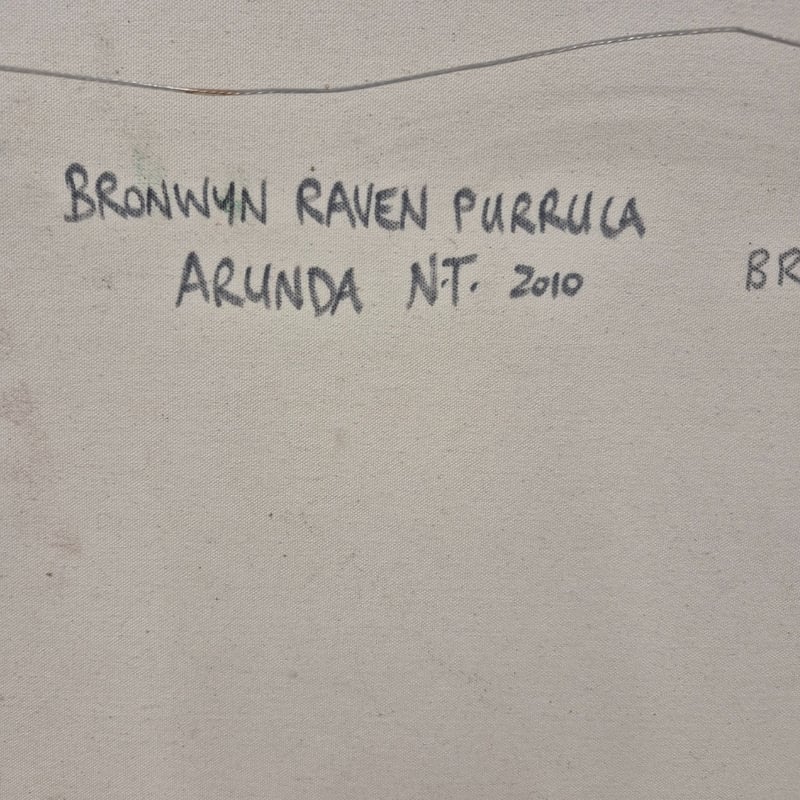 BRONWYN RAVEN PURRULA
ARUNDA N.T. 2010
BR